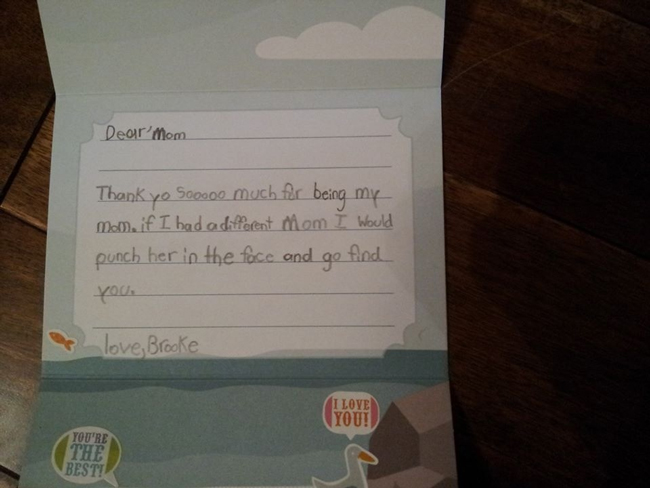 Dear Mom
Thank yo Sooooo much for being my
mom. if I had a different Mom I Would
punch her in the face and go find
you.
love, Brooke
I LOVE
YOU!
YOU'RE
THE
BEST!